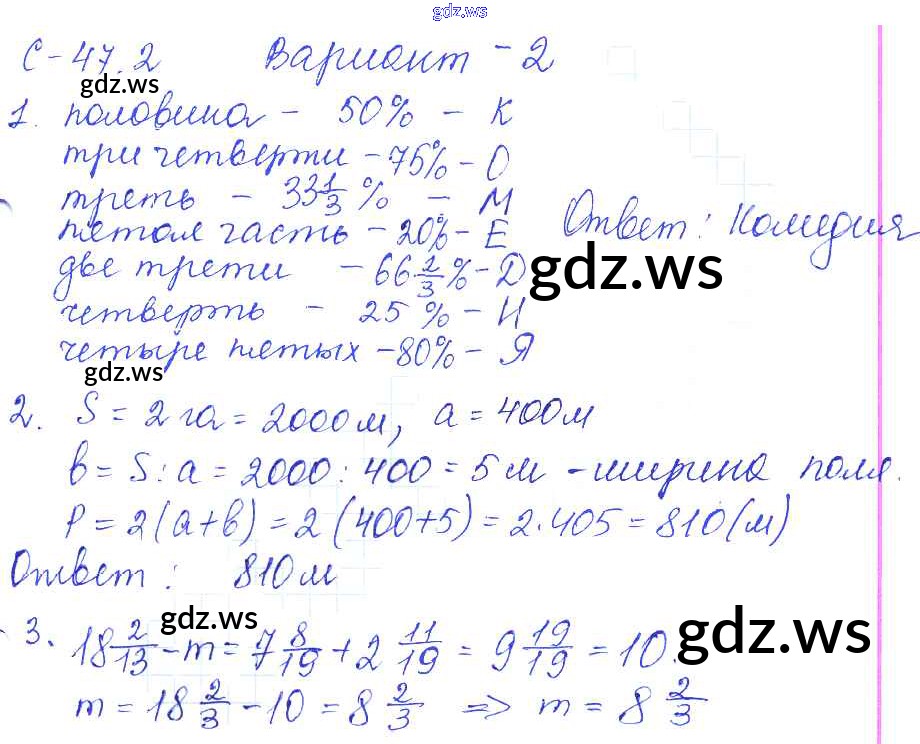 gdz.ws
С-47.2 Вариант-2
gdz.ws
1. половина - 50% - К
три четверти - 75% - О
треть - 33 1/3 % - М
пятая часть - 20% - Е Ответ: Комедия
две трети - 66 2/3 % - Д gdz.ws
четверть - 25% - И
четыре пятых - 80% - Я
gdz.ws
2. S = 2 га = 2000 м, a = 400 м
b = S : a = 2000 : 400 = 5 м - ширина поля.
P = 2(a+b) = 2(400+5) = 2·405 = 810 (м)
Ответ: 810 м
gdz.ws gdz.ws
3. 18 2/13 - m = 7 8/19 + 2 11/19 = 9 19/19 = 10.
m = 18 2/3 - 10 = 8 2/3 => m = 8 2/3